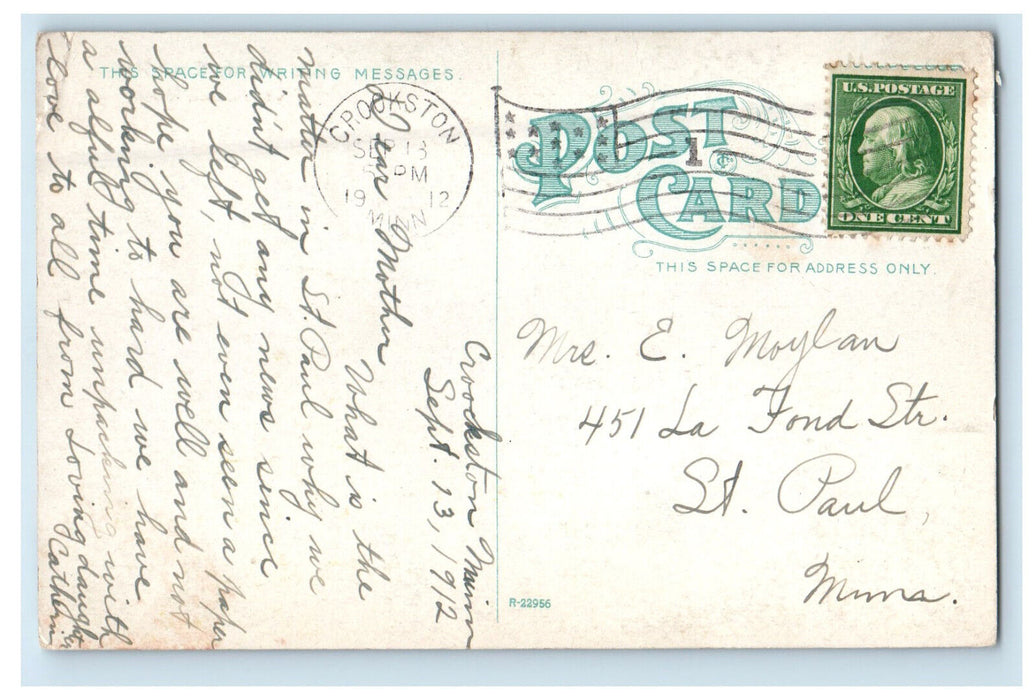 THIS SPACE FOR WRITING MESSAGES.
CROOKSTON
SEP 13
PM
19 12
MINN
POST
CARD
1
U.S. POSTAGE
ONE CENT
THIS SPACE FOR ADDRESS ONLY.
Crookston Minn
Sept. 13, 1912
Dear Mother
What is the
matter in St. Paul why we
didn't get any news since
we left, not even seen a paper
hope you are well and not
working to hard we have
a alful time unpacking with
love to all from Loving daughter
Mrs. E. Moylan
451 La Fond Str.
St. Paul,
Minn.
R-22956